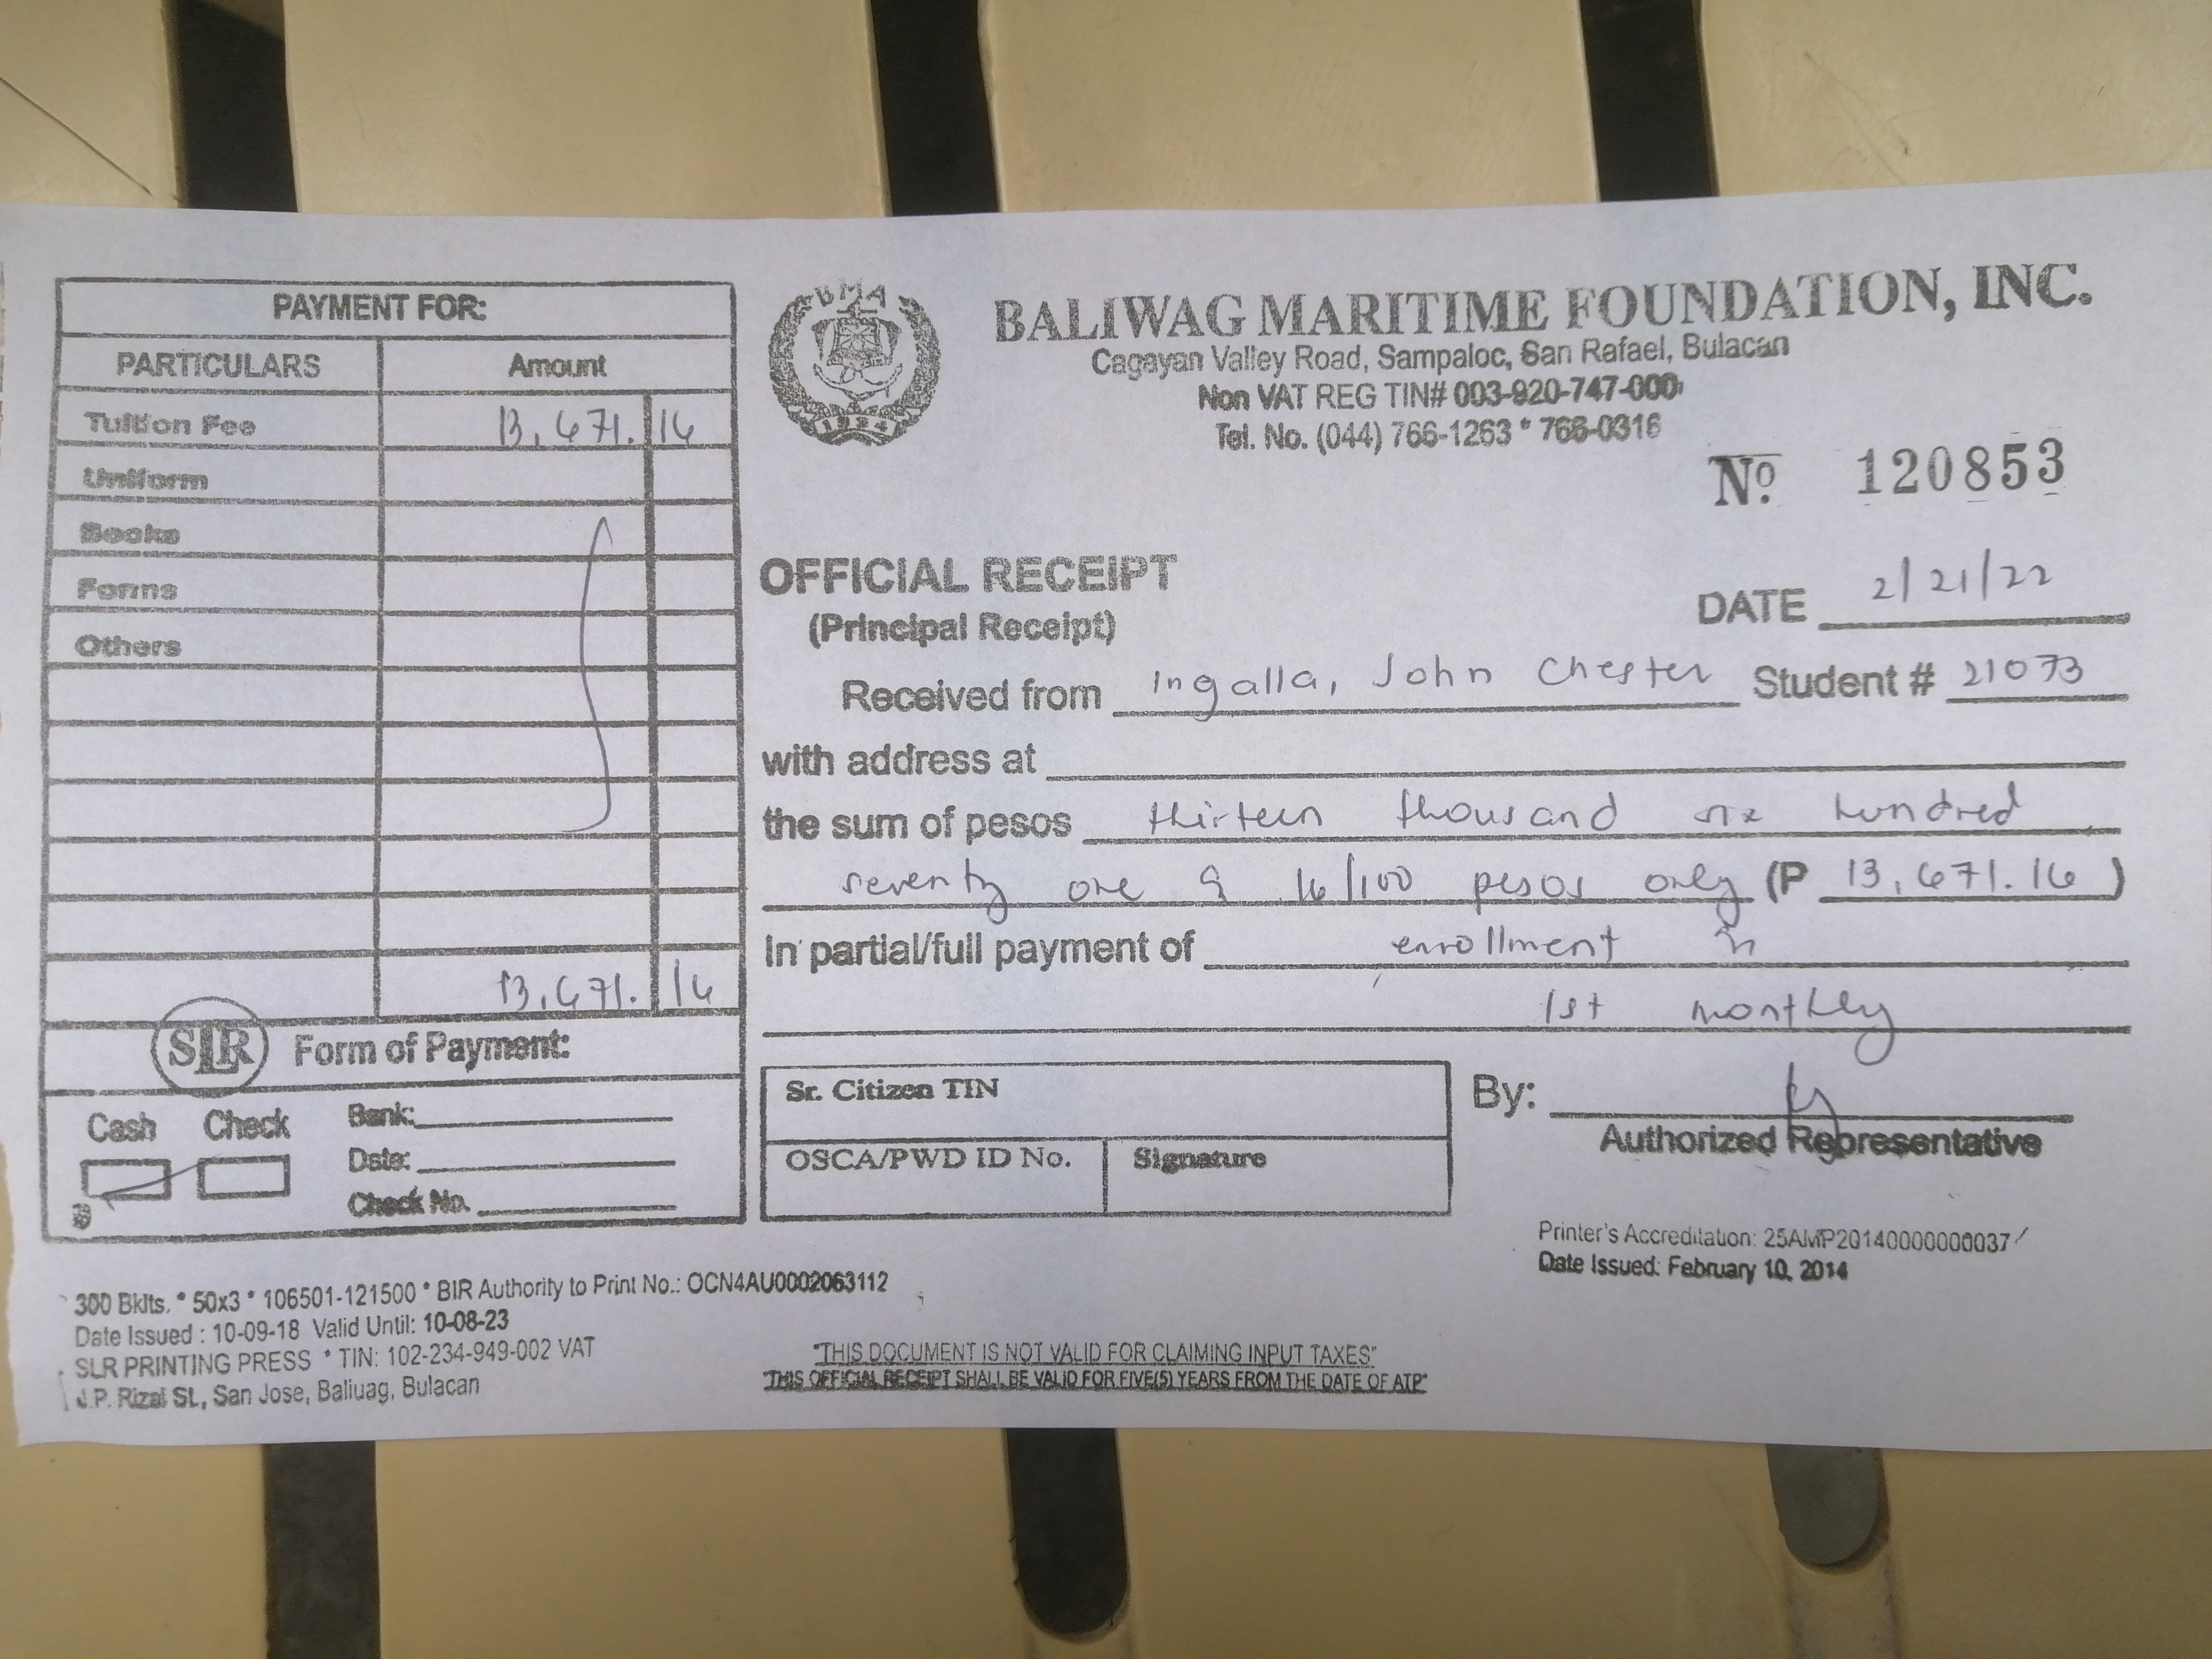 PAYMENT FOR:
PARTICULARS Amount
Tuition Fee 13,671. 16
Uniform
Books
Forms
Others
13,671. 16
SLR Form of Payment:
Cash Check Bank:
Date:
Check No.
BMA
BALIWAG MARITIME FOUNDATION, INC.
Cagayan Valley Road, Sampaloc, San Rafael, Bulacan
Non VAT REG TIN# 003-920-747-000
Tel. No. (044) 766-1263 * 766-0316
Nº 120853
OFFICIAL RECEIPT
(Principal Receipt)
DATE 2/21/22
Received from Ingalla, John Chester Student # 21073
with address at
the sum of pesos thirteen thousand six hundred
seventy one & 16/100 pesos only (P 13,671.16)
In partial/full payment of enrollment in
1st monthly
Sr. Citizen TIN
OSCA/PWD ID No. Signature
By:
Authorized Representative
Printer's Accreditation: 25AMP20140000000037
Date Issued: February 10, 2014
300 Bklts. * 50x3 * 106501-121500 * BIR Authority to Print No.: OCN4AU0002063112
Date Issued : 10-09-18 Valid Until: 10-08-23
SLR PRINTING PRESS * TIN: 102-234-949-002 VAT
J.P. Rizal St., San Jose, Baliuag, Bulacan
"THIS DOCUMENT IS NOT VALID FOR CLAIMING INPUT TAXES"
"THIS OFFICIAL RECEIPT SHALL BE VALID FOR FIVE(5) YEARS FROM THE DATE OF ATP"